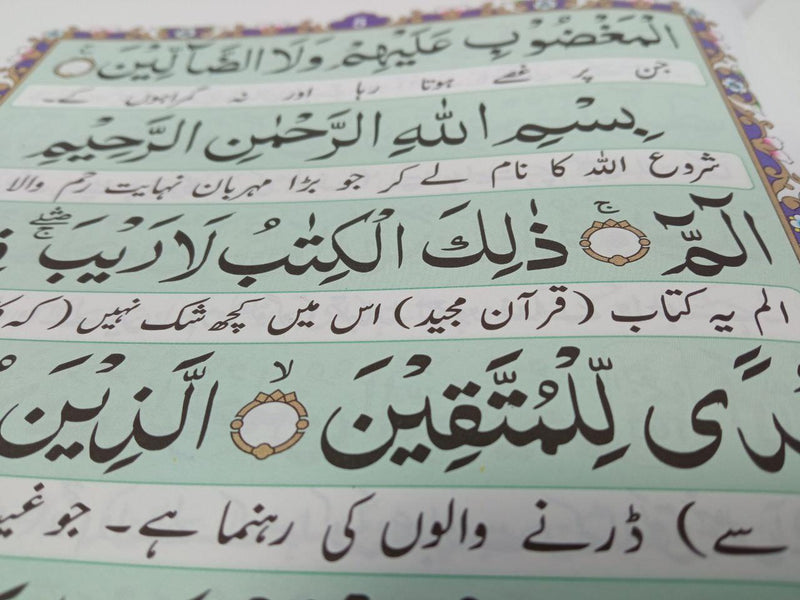 الْمَغْضُوْبِ عَلَيْهِمْ وَلَا الضَّآلِّيْنَ
جن پر غصے ہوتا رہا اور نہ گمراہوں کے۔
بِسْمِ اللّٰهِ الرَّحْمٰنِ الرَّحِيْمِ
شروع اللہ کا نام لے کر جو بڑا مہربان نہایت رحم والا
الٓمّٓ ۚ ذٰلِكَ الْكِتٰبُ لَا رَيْبَ
الم یہ کتاب (قرآن مجید) اس میں کچھ شک نہیں (کہ
لِّلْمُتَّقِيْنَ ۙ الَّذِيْنَ
سے) ڈرنے والوں کی رہنما ہے۔ جو